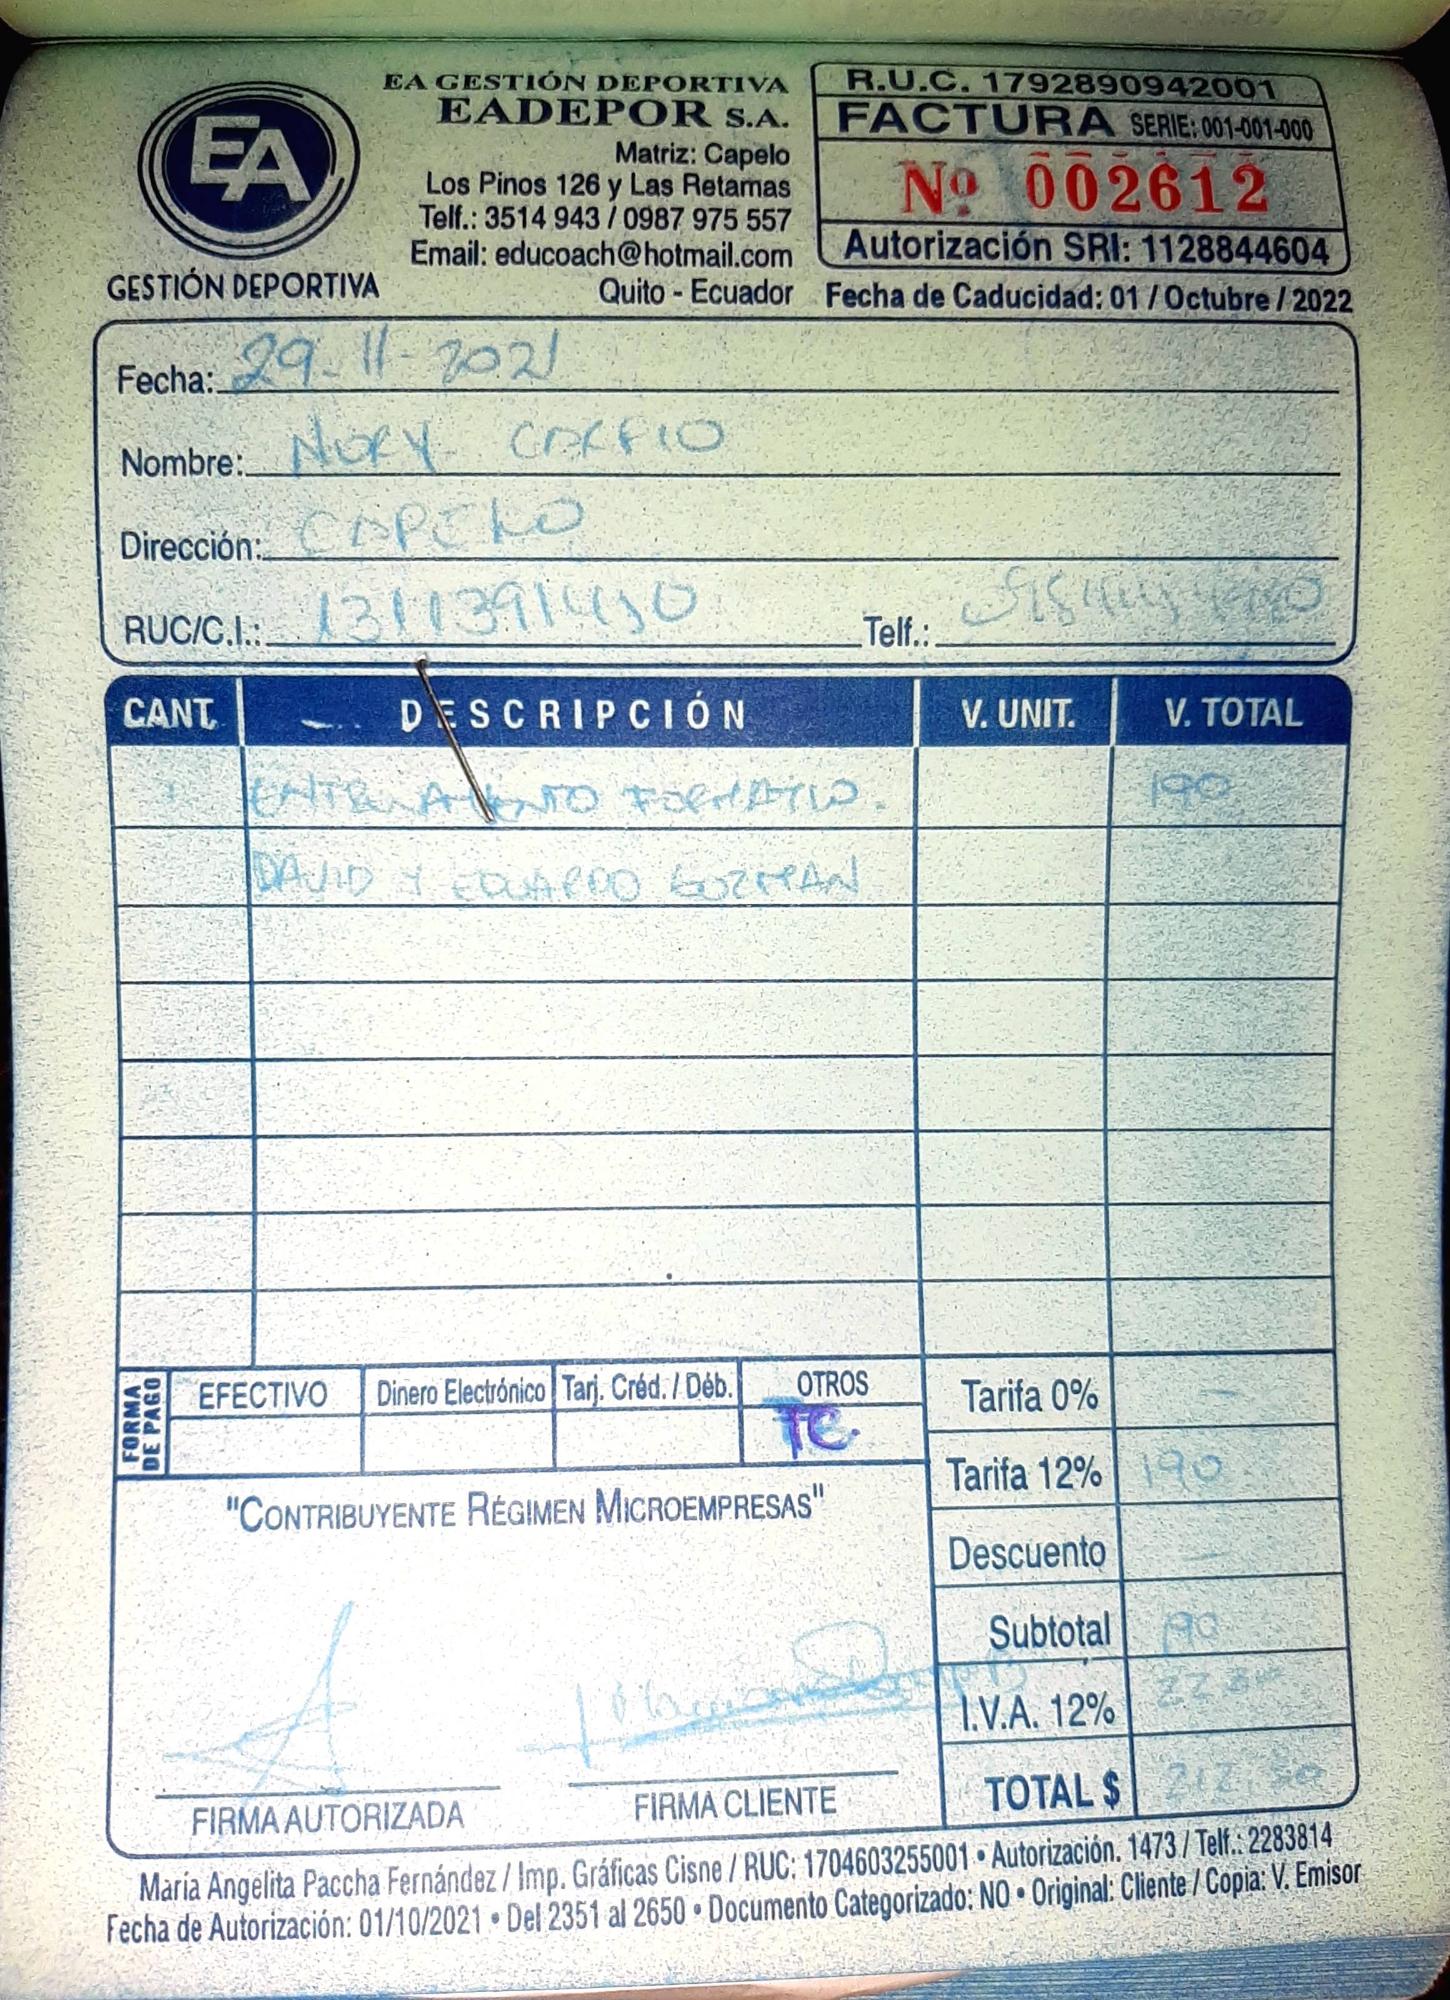 EA
GESTIÓN DEPORTIVA
EA GESTIÓN DEPORTIVA
EADEPOR S.A.
Matriz: Capelo
Los Pinos 126 y Las Retamas
Telf.: 3514 943 / 0987 975 557
Email: educoach@hotmail.com
Quito - Ecuador
R.U.C. 1792890942001
FACTURA SERIE: 001-001-000
Nº 002612
Autorización SRI: 1128844604
Fecha de Caducidad: 01 / Octubre / 2022
Fecha: 29-11-2021
Nombre: NURY CARFIO
Dirección: CAPELO
RUC/C.I.: 1311391430 Telf.:
CANT. DESCRIPCIÓN V. UNIT. V. TOTAL
ENTRENAMIENTO FORMATIO. 190
DAVID Y EDUARDO GUZMAN
FORMA DE PAGO
EFECTIVO Dinero Electrónico Tarj. Créd. / Déb. OTROS
TC.
Tarifa 0% -
Tarifa 12% 190
Descuento -
Subtotal 190
I.V.A. 12% 22 80
TOTAL $ 212 80
"CONTRIBUYENTE RÉGIMEN MICROEMPRESAS"
FIRMA AUTORIZADA FIRMA CLIENTE
María Angelita Paccha Fernández / Imp. Gráficas Cisne / RUC: 1704603255001 • Autorización. 1473 / Telf.: 2283814
Fecha de Autorización: 01/10/2021 • Del 2351 al 2650 • Documento Categorizado: NO • Original: Cliente / Copia: V. Emisor